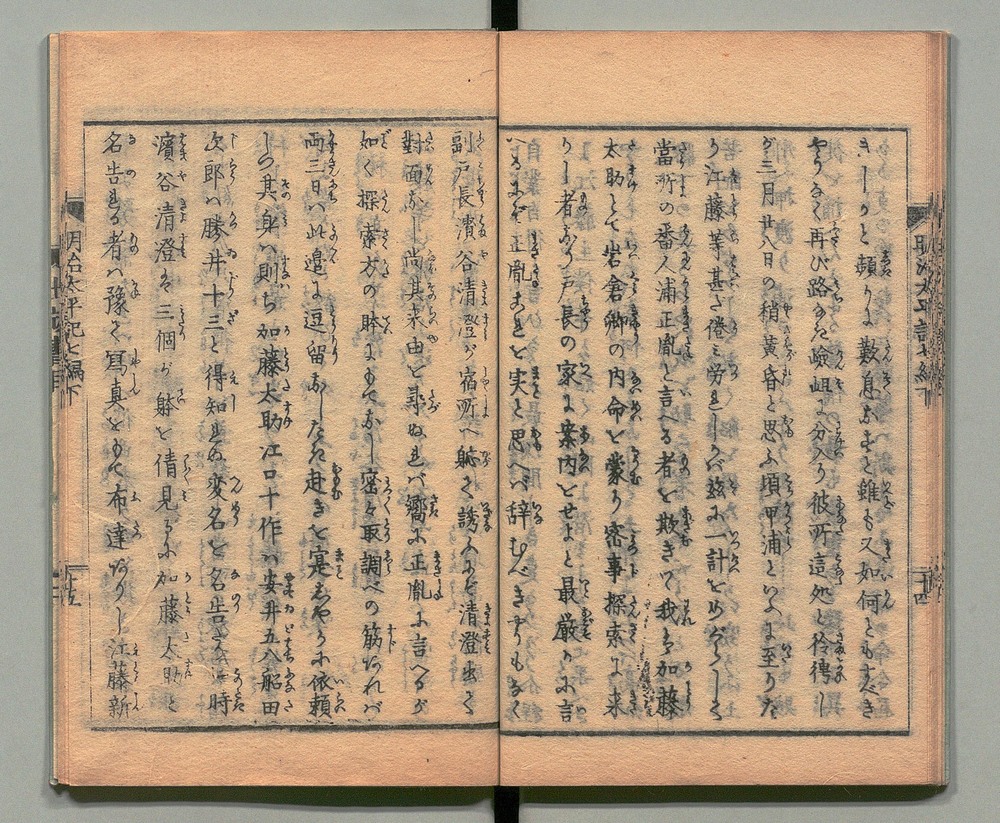 きしかと頻りに歎息なすと雖も又如何ともすべき
やうなく再び路なき嶮岨に分入り彼所這処と伶俜し
が三月廿八日の稍黄昏と思ふ頃甲浦といふに至りた
り江藤等甚だ倦み労れしかば茲に一計をめぐらし
當所の番人浦正胤と言へる者を欺きて我は加藤
太助とて岩倉卿の内命を蒙り密事探索に来
りし者なり戸長の家に案内をせよと最厳かに言
へるにぞ正胤これを実と思へば辞むべきやうもなく
副戸長濱谷清澄が宿所へ誘ふと清澄出て
對面なし尚其来由を尋ぬれば嚮に正胤に言へるが
如く探索方の躰にもてなし密々取調べの筋あれば
両三日は此邉に逗留なしたき赴きを寔しやかに依頼
しつ其身は則ち加藤太助江口十作は安井五八船田
次郎は勝井十三と得知れぬ変名を名告る時
濱谷清澄は三個が躰を倩見るに加藤太助と
名告れる者は豫て寫真をもて布達ありし江藤新
明治太平記七編下